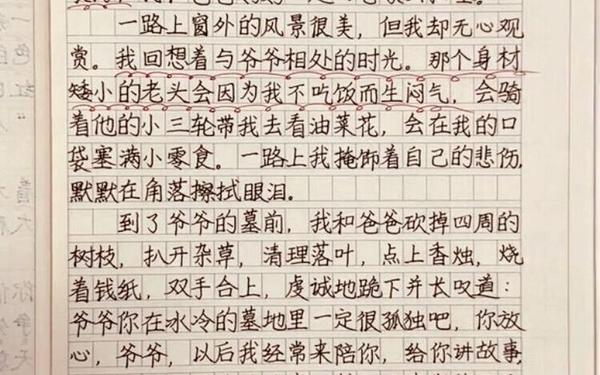 一路上窗外的风景很美，但我却无心观
赏。我回想着与爷爷相处的时光。那个身材
矮小的老头会因为我不吃饭而生闷气，会骑
着他的小三轮带我去看油菜花，会在我的口
袋塞满小零食。一路上我掩饰着自己的悲伤，
默默在角落擦拭眼泪。
到了爷爷的墓前，我和爸爸砍掉四周的
树枝，扒开杂草，清理落叶，点上香烛，烧
着钱纸，双手合上，虔诚地跪下并长叹道：
爷爷你在冰冷的墓地里一定很孤独吧，你放
心，爷爷，以后我经常来陪你，给你讲故事